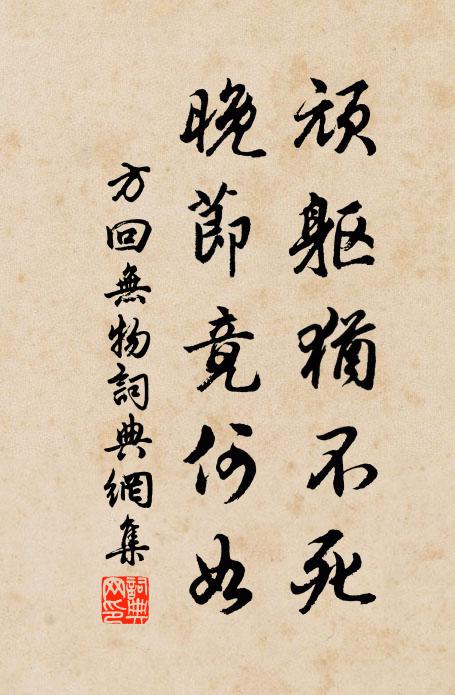 頑軀猶不死
晚節竟何如
方回無物詞典網集
詞典网印